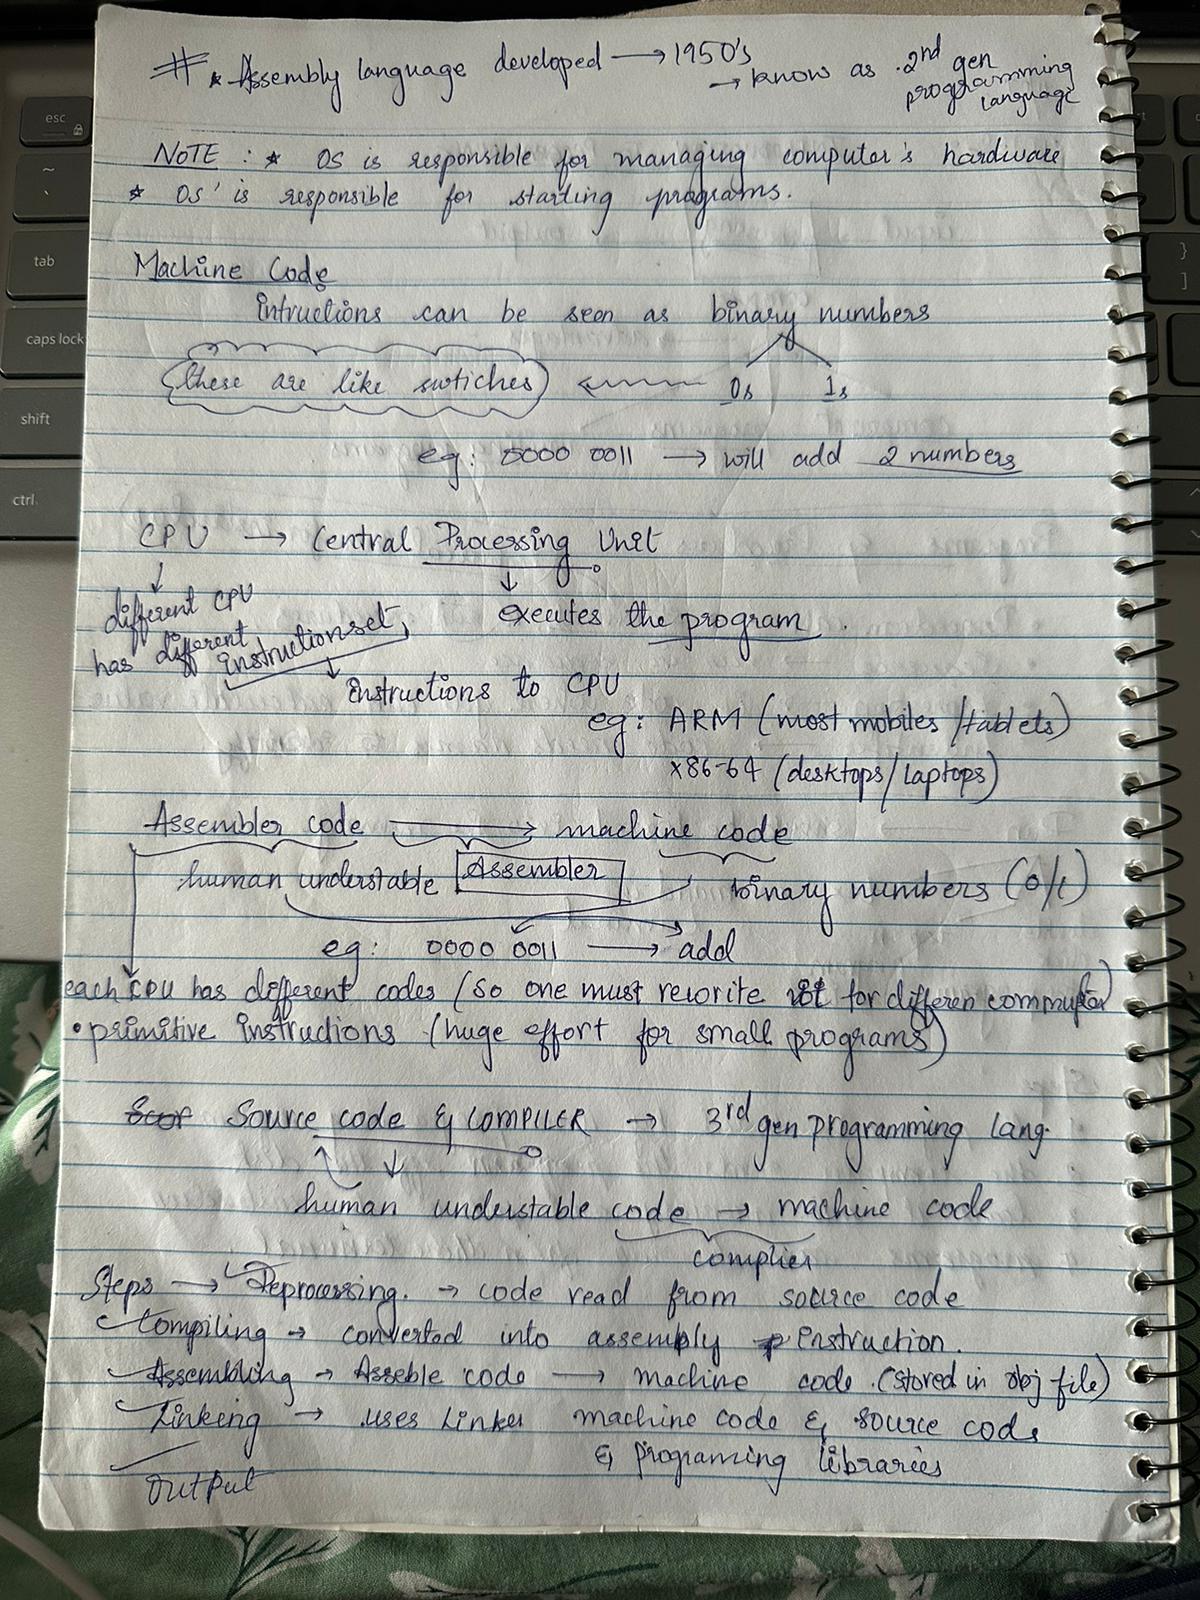 # * Assembly language developed → 1950's
→ know as 2nd gen
programming
language
NOTE : * OS is responsible for managing computer's hardware
* OS' is responsible for starting programs.
Machine Code
Intructions can be seen as binary numbers
(these are like swtiches) ← 0s 1s
eg: 0000 0011 → will add 2 numbers
CPU → Central Processing Unit
↓ ↓
different CPU executes the program.
has different instruction set,
↓
Instructions to CPU
eg: ARM (most mobiles/tablets)
x86-64 (desktops/laptops)
Assembler code → machine code
human understable Assembler binary numbers (0/1)
eg: 0000 0011 → add
each CPU has different codes (so one must rewrite it for differen
• primitive instructions (huge effort for small programs)
Source code & COMPILER → 3rd gen programming lang.
human understable code → machine code
complier
Steps → Preprocessing. → code read from source code
Compiling → converted into assembly Instruction.
Assembling → Asseble code → machine code. (stored in obj file)
Linking → uses Linker machine code & source code
& programing libraries
OUTPUT
esc
~
tab
caps lock
shift
ctrl
}
]